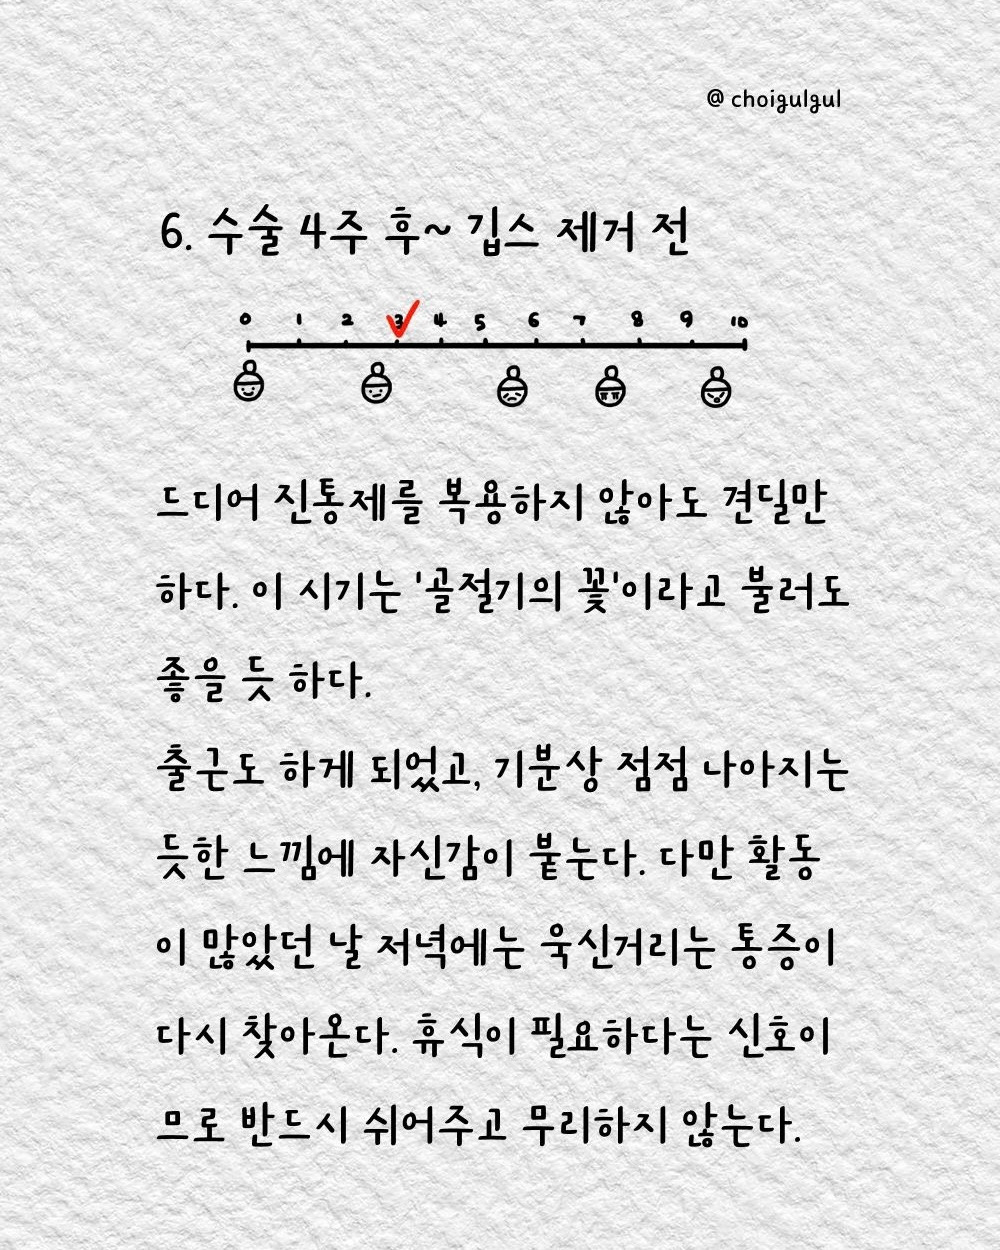 @ choigulgul
6. 수술 4주 후~ 깁스 제거 전
0 1 2 3 4 5 6 7 8 9 10
드디어 진통제를 복용하지 않아도 견딜만
하다. 이 시기는 '골절기의 꽃'이라고 불러도
좋을 듯 하다.
출근도 하게 되었고, 기분상 점점 나아지는
듯한 느낌에 자신감이 붙는다. 다만 활동
이 많았던 날 저녁에는 욱신거리는 통증이
다시 찾아온다. 휴식이 필요하다는 신호이
므로 반드시 쉬어주고 무리하지 않는다.